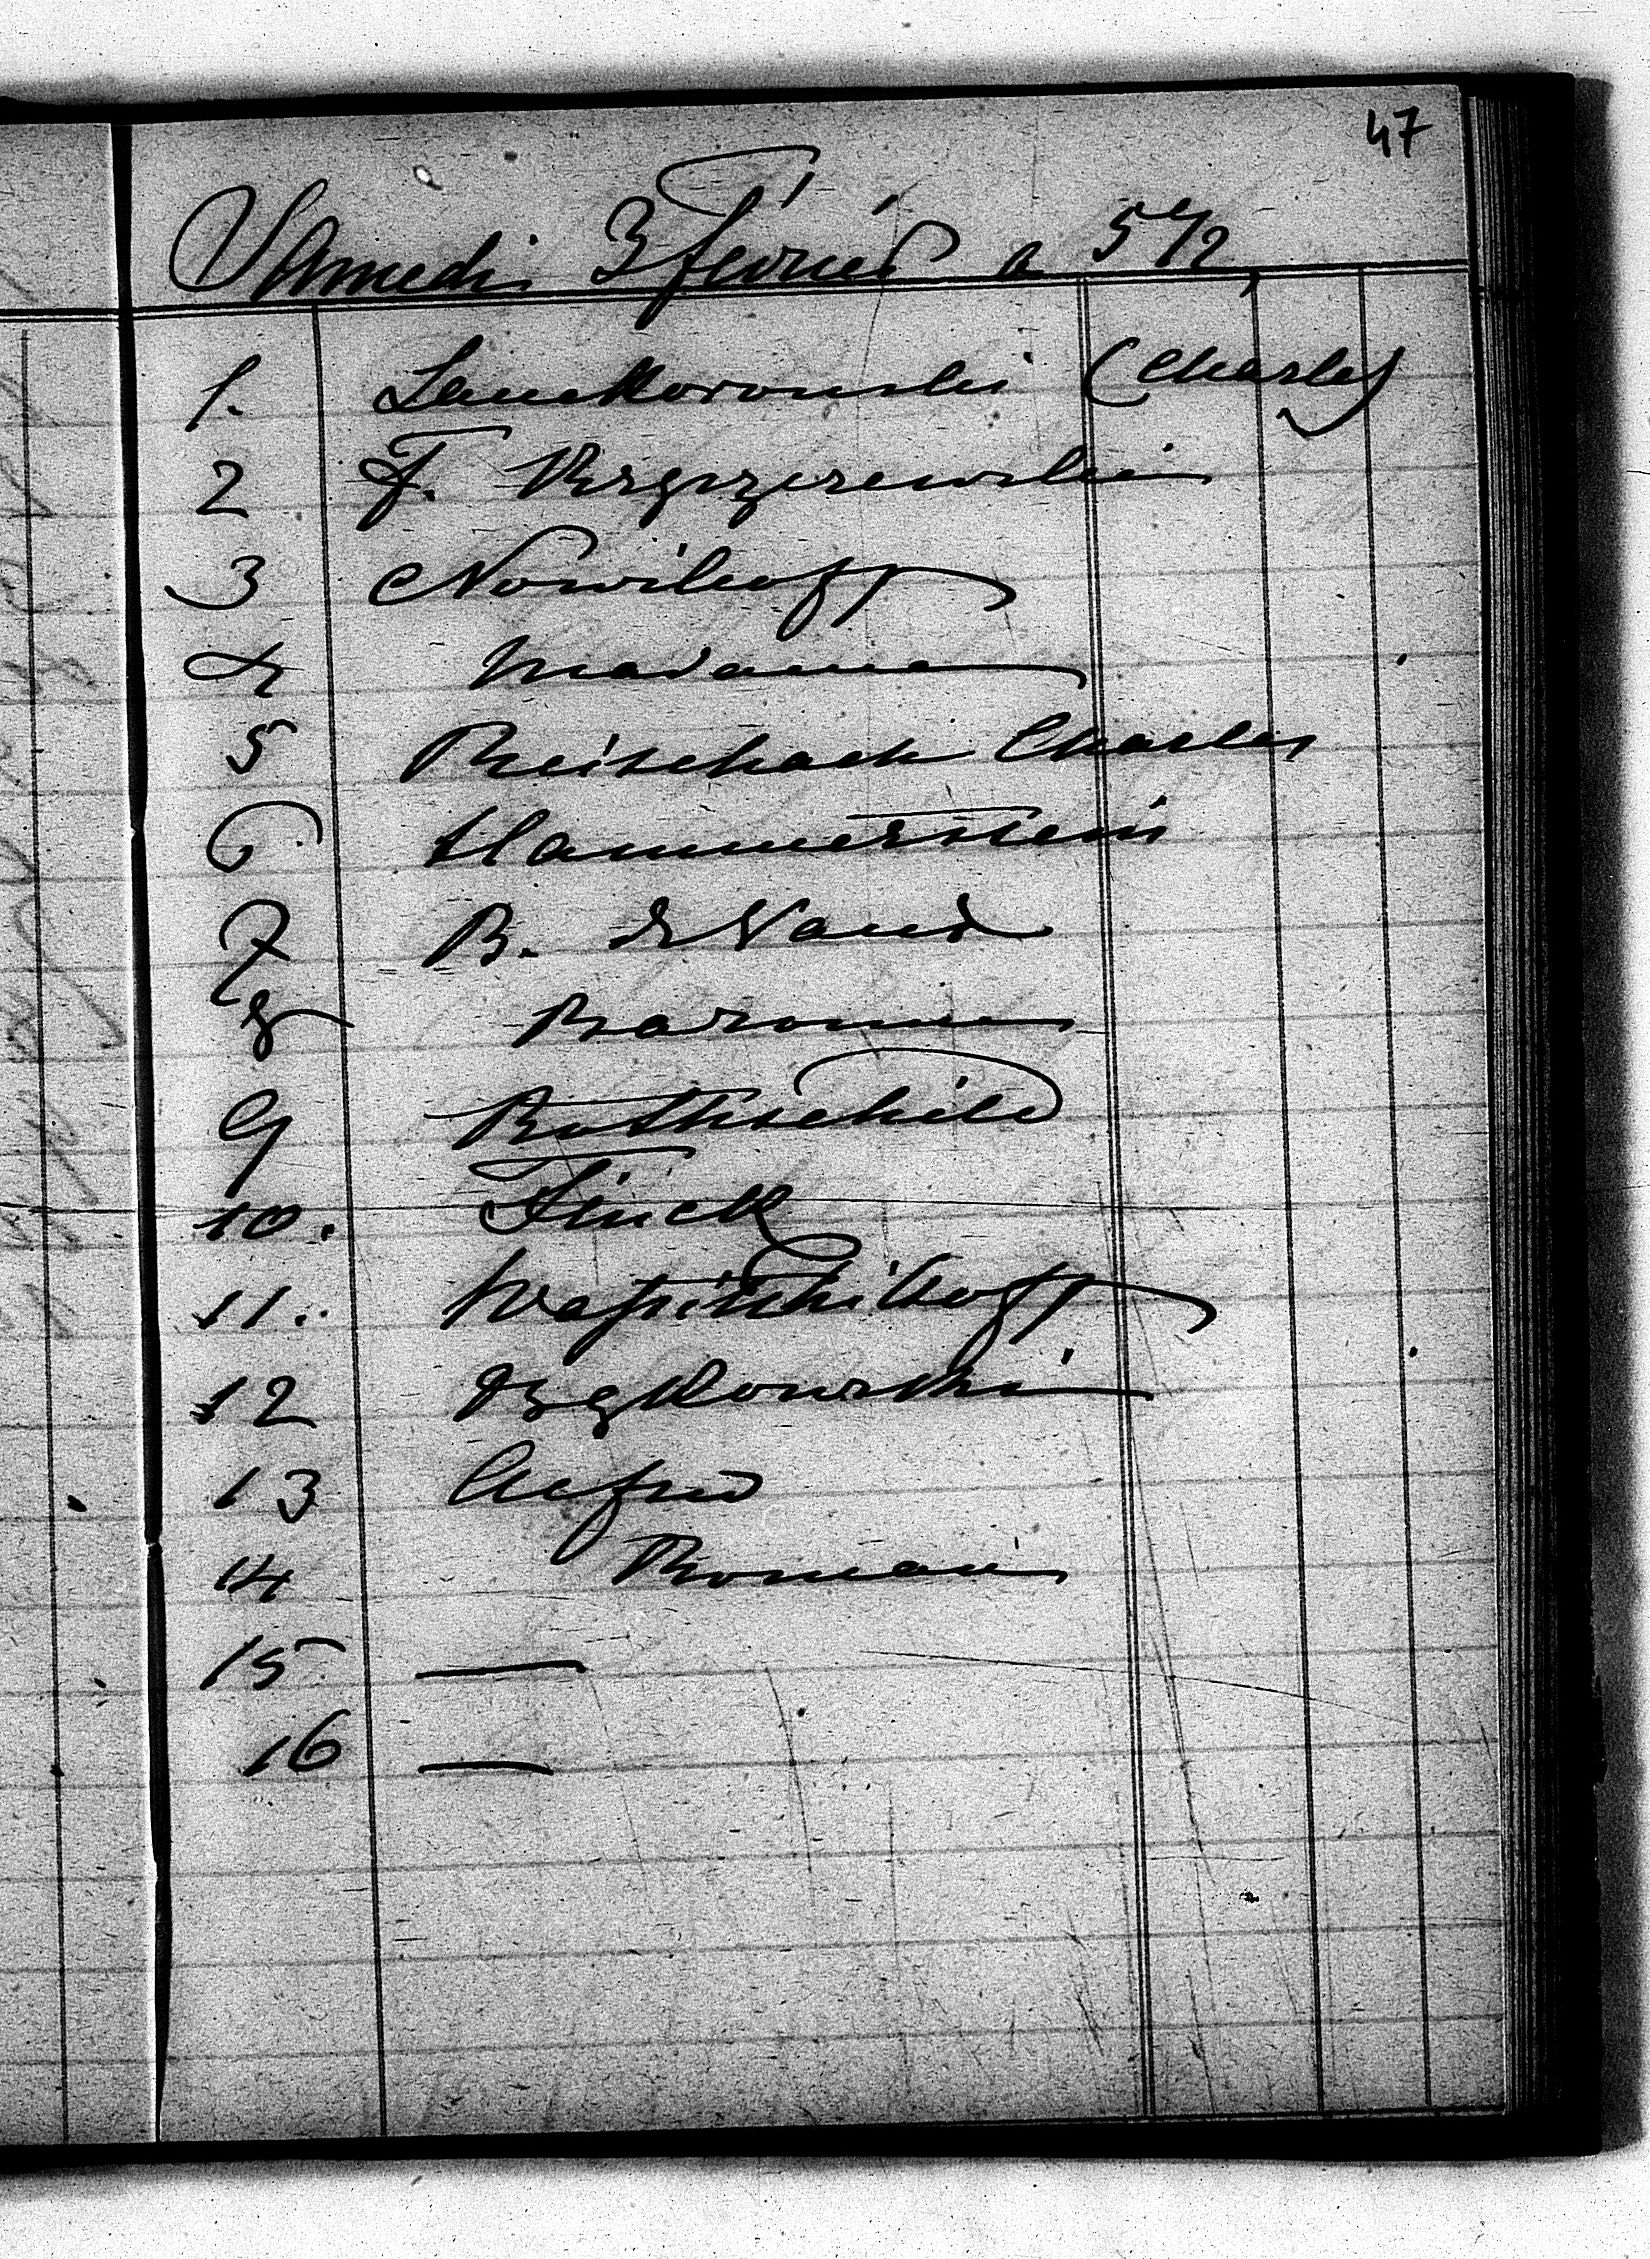 47
Samedi 3 février a 5 1/2
1. Lanckoronski (Charles)
2 F. Krzyszewski
3 Nowikoff
4 Madame
5 Reischach Charles
6 Hammerstein
7 B. de Vaux
8 Baronne
9 Rothschild
10. Flinck
11.
12 Bykowski
13 Alfred
14 Roman
15 —
16 —